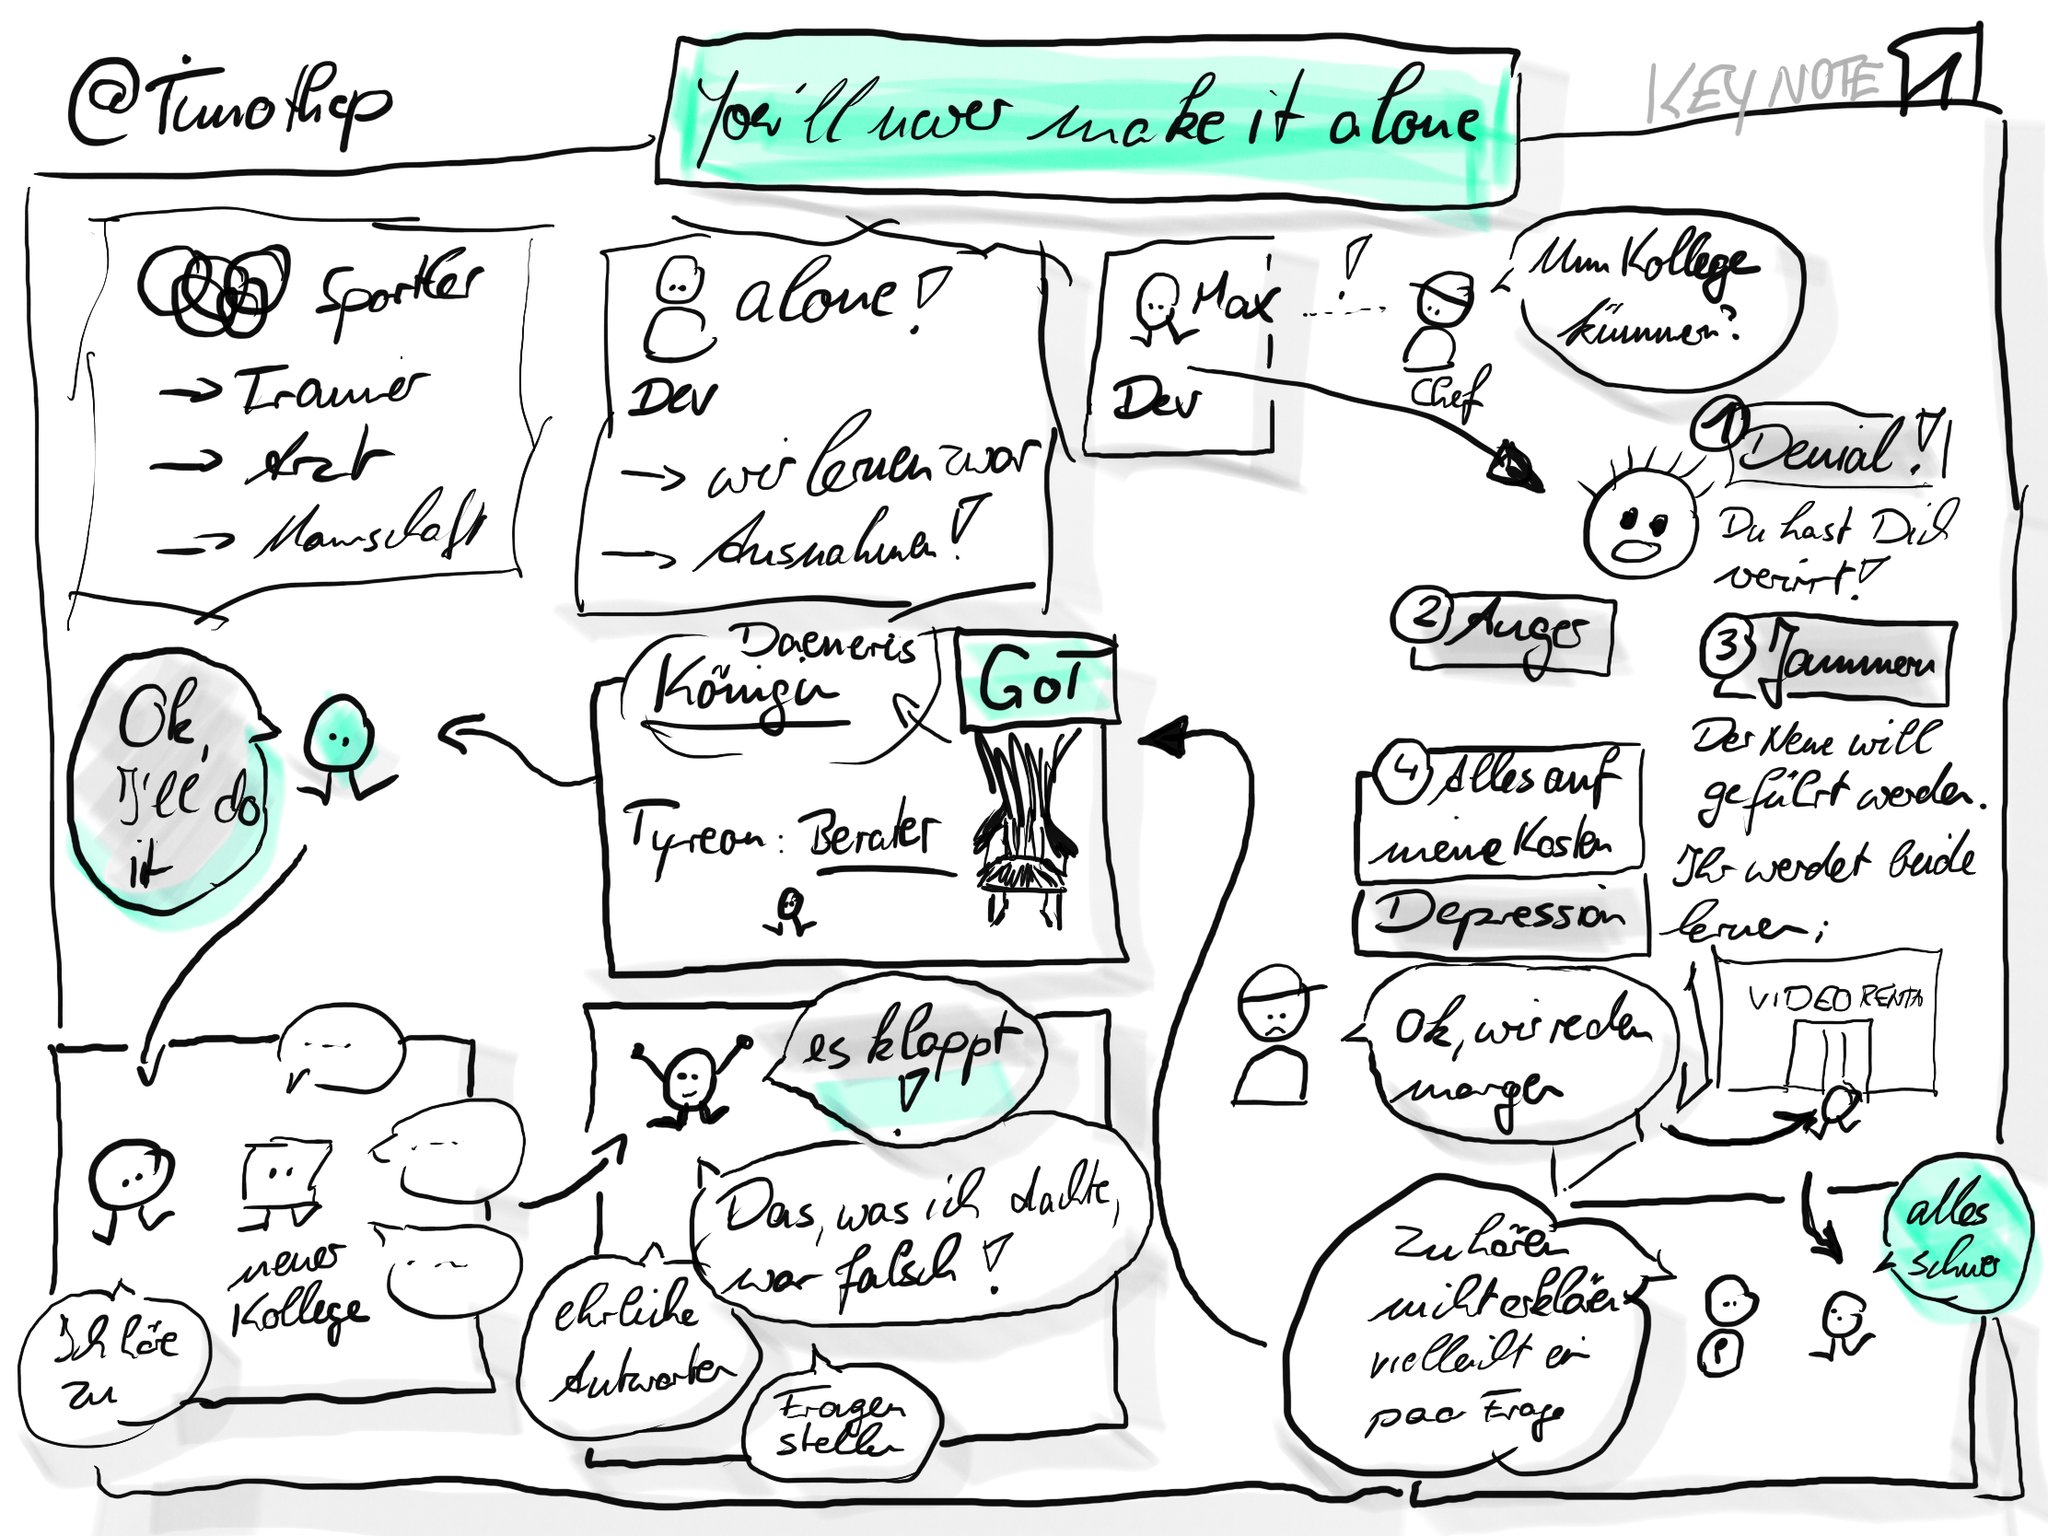 @Timothep
You'll never make it alone
KEYNOTE 1
Sportler
→ Trainer
→ Arzt
→ Mannschaft
alone!
Dev
→ wir lernen zwar
→ Ausnahmen!
Max
!
Dev
Chef
Um Kollege
kümmern?
1 Denial!
Du hast Dich
verirrt!
2 Anger
3 Jammern
Der Neue will
geführt werden.
Ihr werdet beide
lernen;
4 Alles auf
meine Kosten
Depression
Ok, wir reden
morgen
VIDEO RENTA
alles
schwer
Zuhören
nicht erklären
vielleicht ein
paar Frage
GoT
Daeneris
Königin
Tyreon: Berater
Ok,
I'll do
it
neuer
Kollege
Ich höre
zu
es klappt
!
Das, was ich dachte,
war falsch!
ehrliche
Antworten
Fragen
stellen